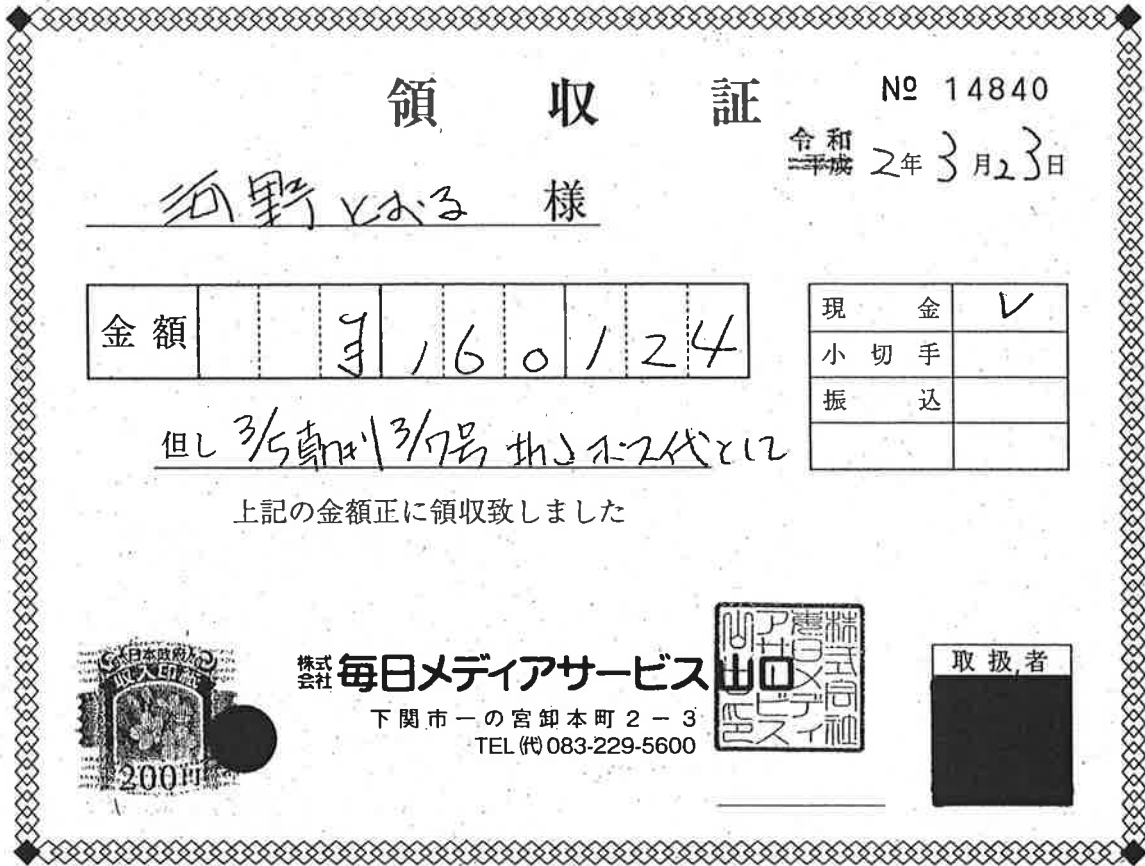 領収証
№ 14840
令和
平成 2年 3月23日
河野とおる 様
金額 ¥160124
現金 ✓
小切手
振込
但し 3/5朝刊 3/7号 折込 代として
上記の金額正に領収致しました
日本政府
収入印紙
200円
株式会社 毎日メディアサービス山口
下関市一の宮卸本町2-3
TEL(代)083-229-5600
取扱者